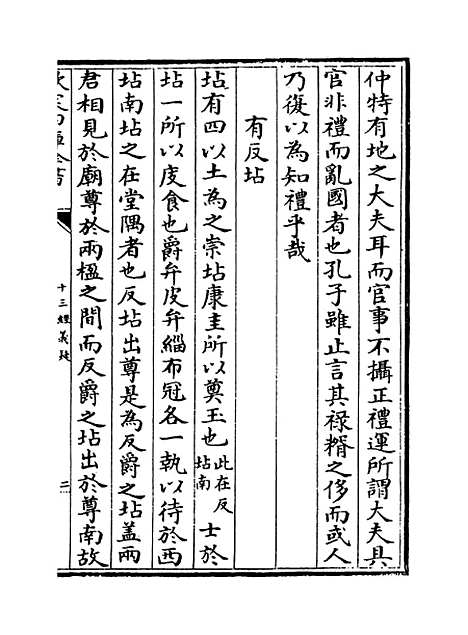 仲特有地之大夫耳而官事不攝正禮運所謂大夫具
官非禮而亂國者也孔子雖止言其祿糈之侈而或人
乃復以為知禮乎哉
有反坫
坫有四以土為之崇坫康圭所以奠玉也此在反坫南士於
坫一所以庋食也爵弁皮弁緇布冠各一執以待於西
坫南坫之在堂隅者也反坫出尊是為反爵之坫蓋兩
君相見於廟尊於兩楹之間而反爵之坫出於尊南故
欽定四庫全書
十三經義疑
二